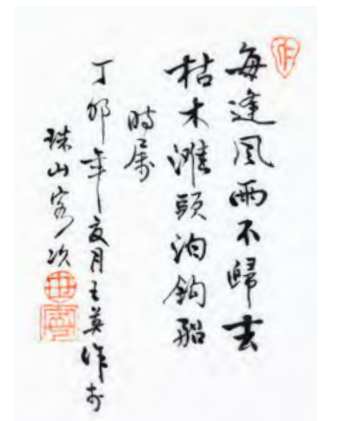 每逢風雨不歸去
枯木灘頭泊釣船
時屬
丁卯年夏月王英作於
珠山客次